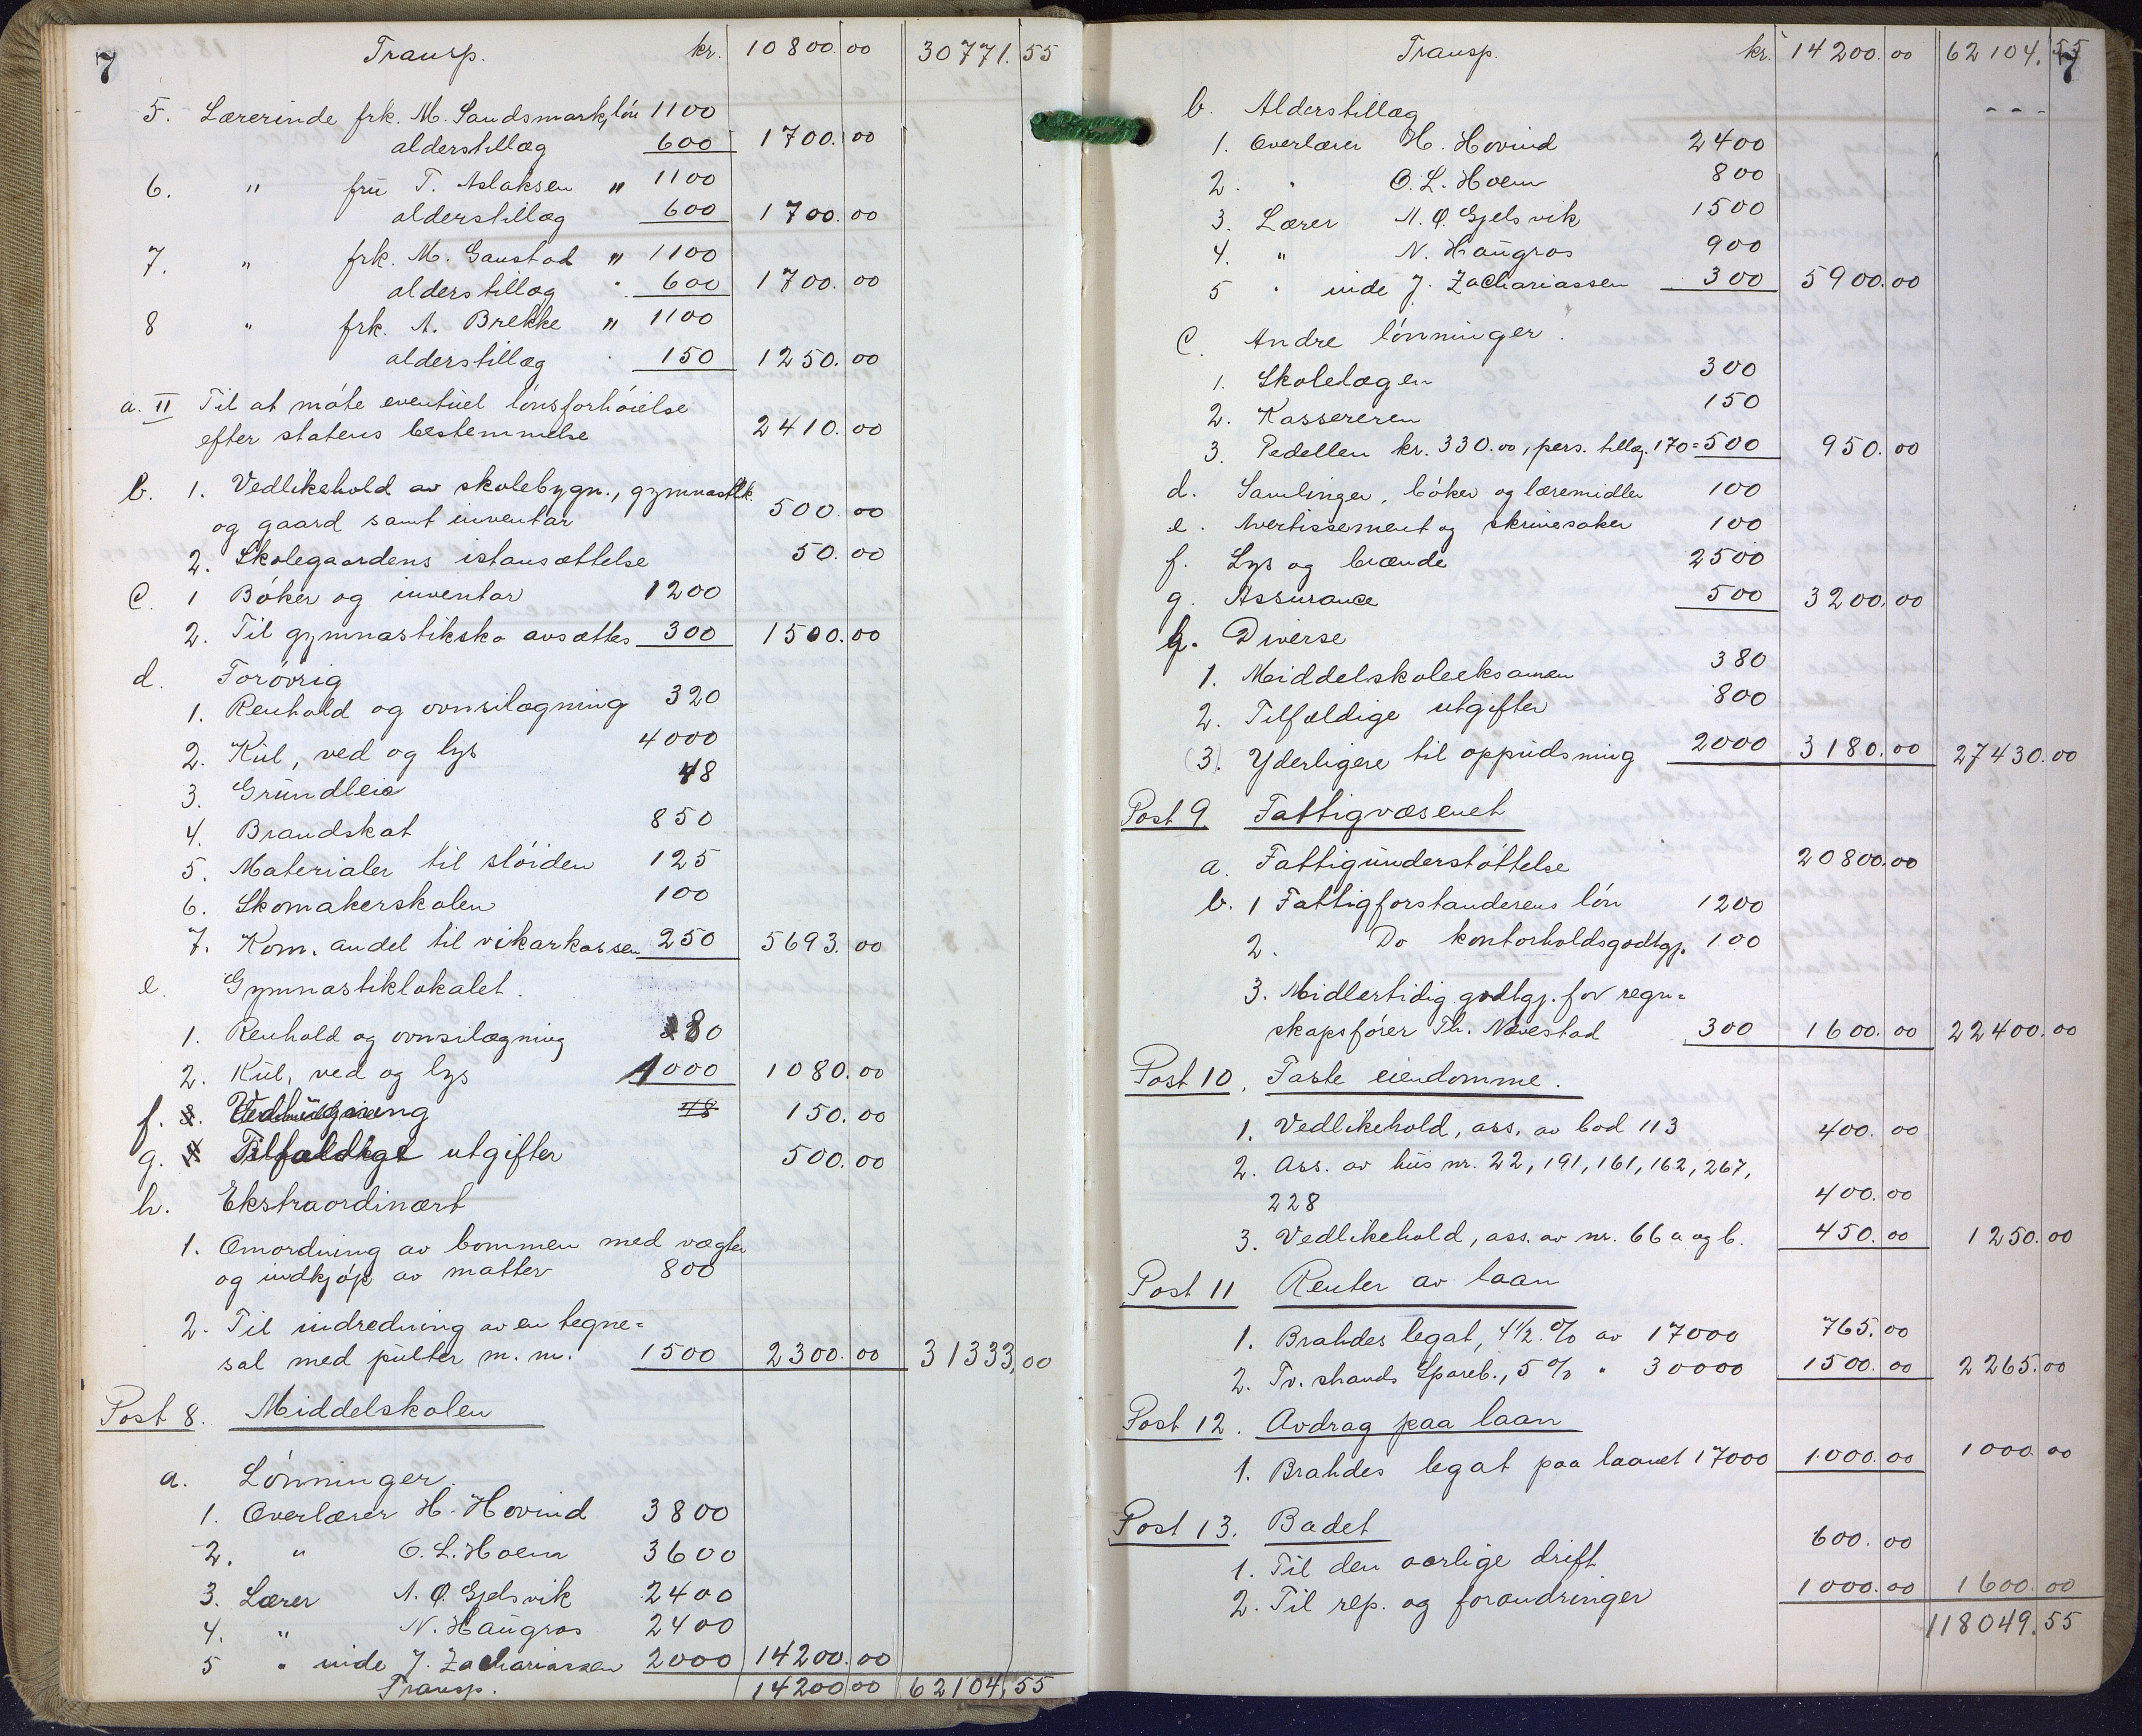 7 Transp. kr. 10800.00 30771.55
5. Lærerinde frk. M. Sandsmark, løn 1100
alderstillæg 600 1700.00
6. " fru T. Aslaksen " 1100
alderstillæg 600 1700.00
7. " frk. M. Gaustad " 1100
alderstillæg " 600 1700.00
8 " frk. A. Brekke " 1100
alderstillæg 150 1250.00
a. II Til at møte eventuel lønsforhøielse
efter statens bestemmelse 2410.00
b. 1. Vedlikehold av skolebygn., gymnastlk.
og gaard samt inventar 500.00
2. Skolegaardens istansættelse 50.00
c. 1 Bøker og inventar 1200
2. Til gymnastiksko avsættes 300 1500.00
d. Forøvrig
1. Renhold og ovnsilægning 320
2. Kul, ved og lys 4000
3. Grundleie 48
4. Brandskat 850
5. Materialer til sløiden 125
6. Skomakerskolen 100
7. Kom. andel til vikarkassen 250 5693.00
e. Gymnastiklokalet.
1. Renhold og ovnsilægning 80
2. Kul, ved og lys 1000 1080.00
f. 150.00
g. Tilfældige utgifter 500.00
h. Ekstraordinært
1. Omordning av bommen med vægter
og indkjøp av matter 800
2. Til indredning av en tegne=
sal med pulter m. m. 1500 2300.00 31333,00
Post 8. Middelskolen
a. Lønninger.
1. Overlærer H. Hovind 3800
2. " O. L. Hoem 3600
3. Lærer A. O. Gjelsvik 2400
4. " N. Haugras 2400
5 " inde J. Zachariassen 2000 14200.00
Transp. 14200 00 62104,55
Transp. kr. 14200.00 62104.55 7
b. Alderstillæg - - -
1. Overlærer H. Hovind 2400
2. " O. L. Hoem 800
3. Lærer A. O. Gjelsvik 1500
4. " N. Haugras 900
5 " inde J. Zachariassen 300 5900.00
c. Andre lønninger.
1. Skolelægen 300
2. Kassereren 150
3. Pedellen kr. 330.00, pers. tillæg. 170 = 500 950.00
d. Samlinger, bøker og læremidler 100
e. Avertissement og skrivesaker 100
f. Lys og brænde 2500
g. Assurance 500 3200.00
h. Diverse
1. Middelskoleeksamen 380
2. Tilfældige utgifter 800
(3). Yderligere til oppudsning 2000 3180.00 27430.00
Post 9 Fattigvæsenet
a. Fattigunderstøttelse 20800.00
b. 1 Fattigforstanderens løn 1200
2. Do kontorholdsgodtgj. 100
3. Midlertidig godtgj. for regn=
skapsfører Th. Nævestad 300 1600.00 22400.00
Post 10. Faste eiendomme.
1. Vedlikehold, ass. av bod 113 400.00
2. Ass. av hus nr. 22, 191, 161, 162, 267,
228 400.00
3. Vedlikehold, ass. av nr. 66 a og b. 450.00 1250.00
Post 11 Renter av laan
1. Brahdes legat, 4 1/2 % av 17000 765.00
2. Tv.strands Spareb., 5 % " 30000 1500.00 2265.00
Post 12. Avdrag paa laan
1. Brahdes legat paa laanet 17000 1000.00 1000.00
Post 13. Badet
1. Til den aarlige drift 600.00
2. Til rep. og forandringer 1000.00 1600.00
118049.55